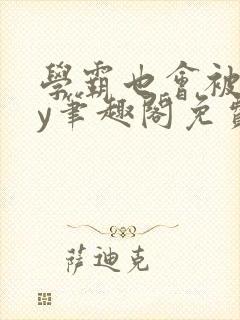 學霸也會被
y筆趣閣免費
薩迪克